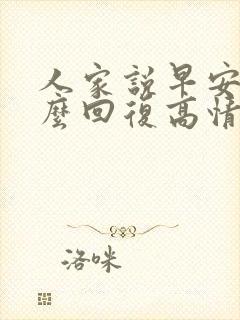 人家説早安
麼回復高情
洛咪